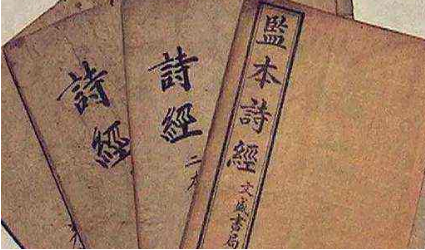 詩經
詩經
二本
監本詩經
文盛書局